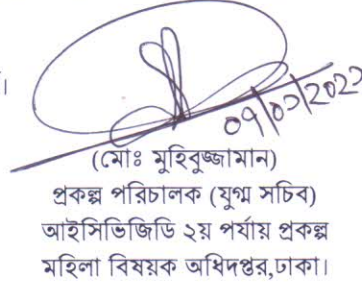 ।
(মোঃ মুহিবুজ্জামান)
প্রকল্প পরিচালক (যুগ্ম সচিব)
আইসিভিজিডি ২য় পর্যায় প্রকল্প
মহিলা বিষয়ক অধিদপ্তর,ঢাকা।